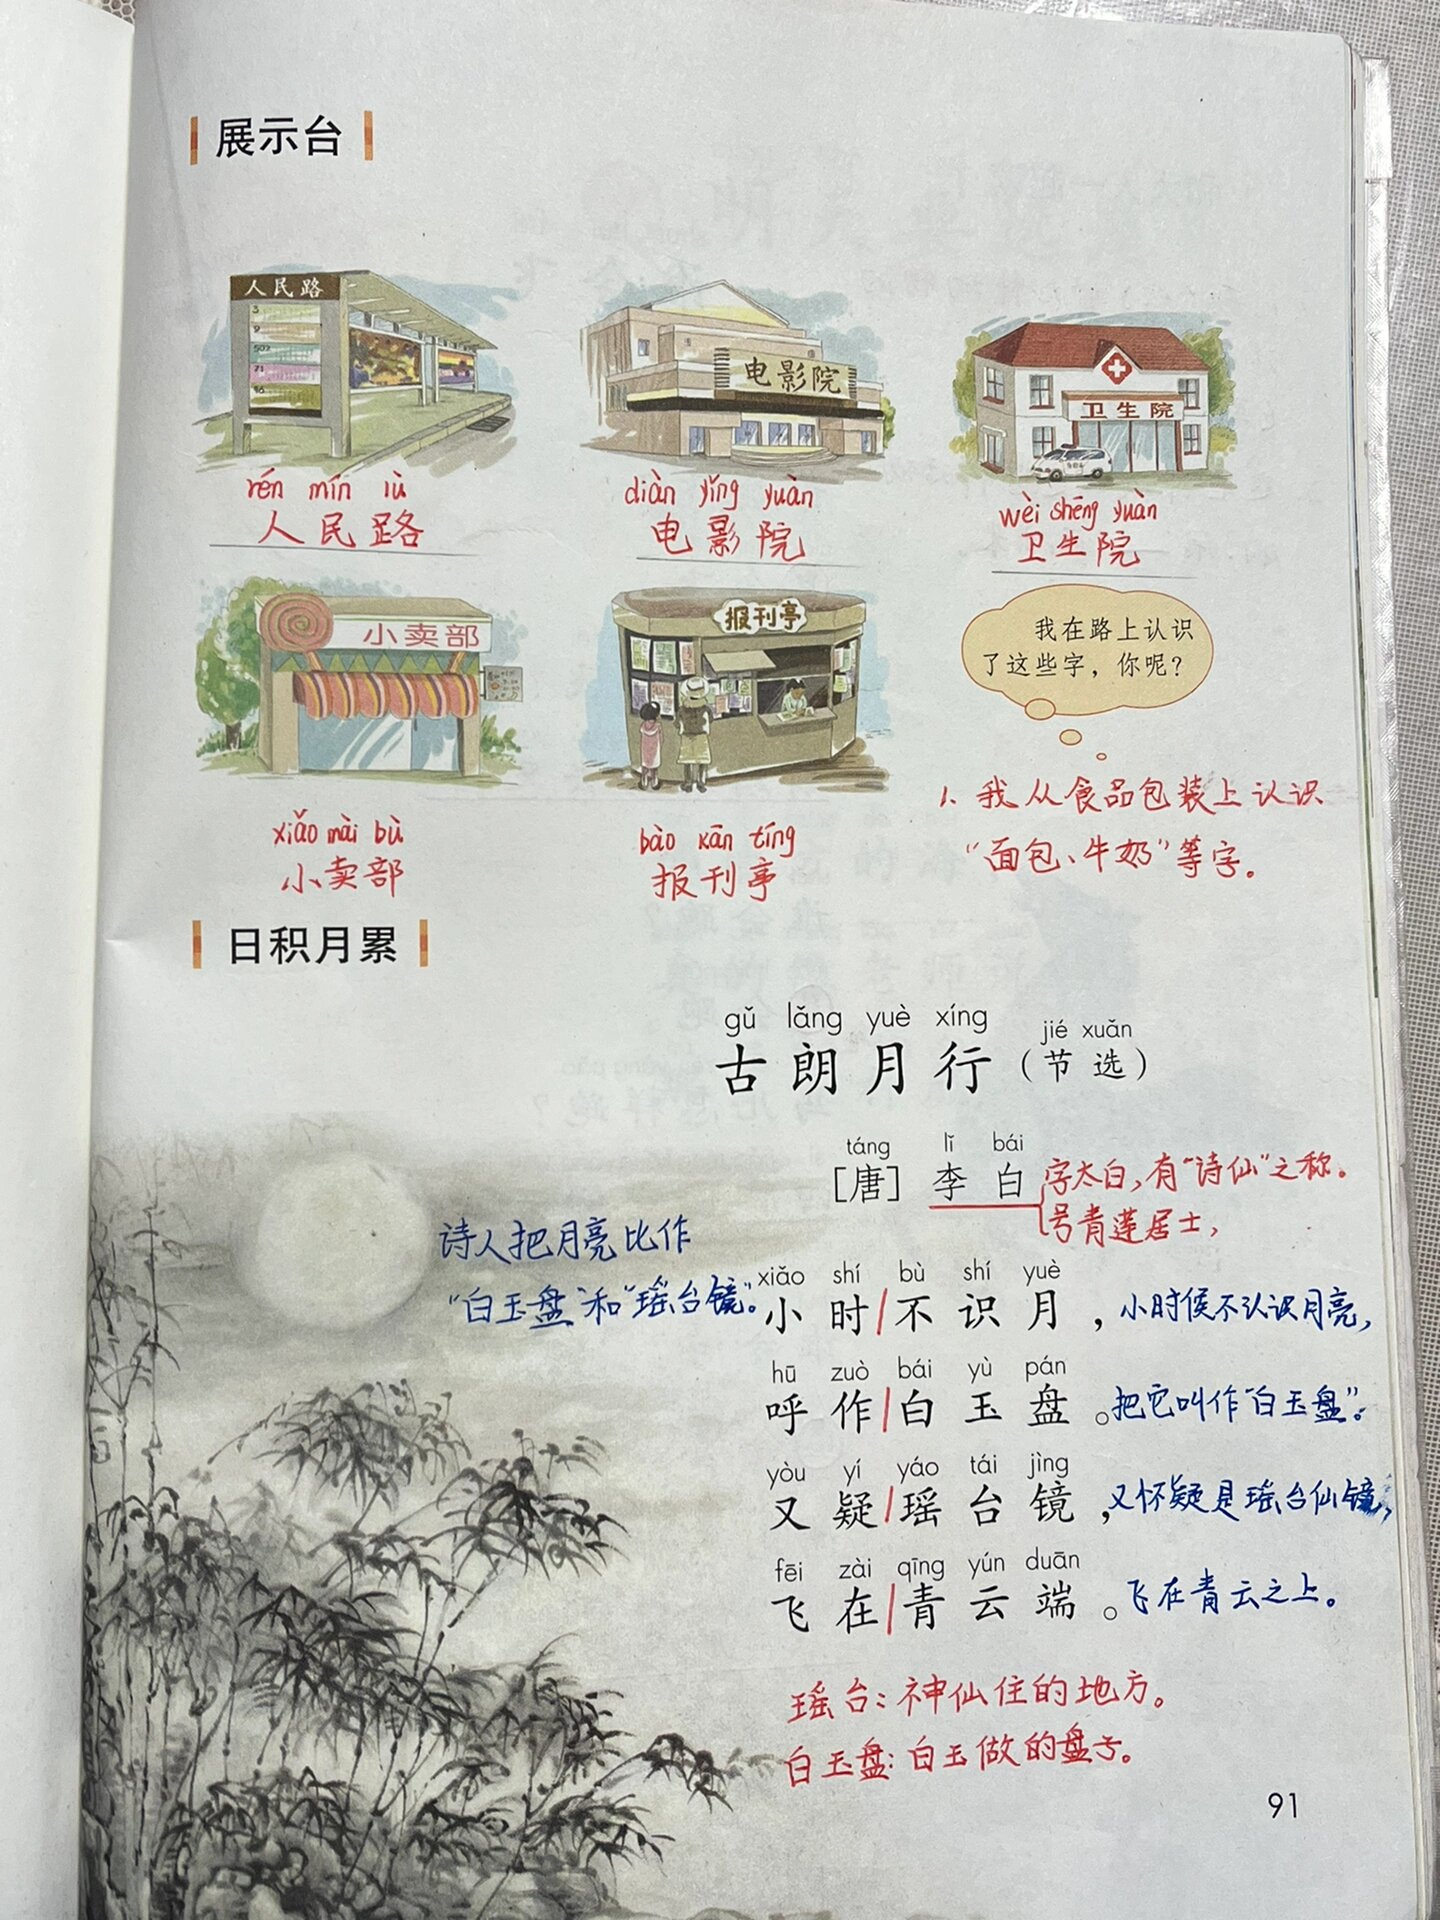 展示台
人民路
3
9
502
71
16
电影院
卫生院
rén mín lù
人民路
diàn yǐng yuàn
电影院
wèi shēng yuàn
卫生院
小卖部
报刊亭
我在路上认识
了这些字，你呢？
xiǎo mài bù
小卖部
bào kān tíng
报刊亭
1. 我从食品包装上认识
“面包、牛奶”等字。
日积月累
gǔ lǎng yuè xíng jié xuǎn
古朗月行（节选）
táng lǐ bái
［唐］李白
字太白，有“诗仙”之称。
号青莲居士，
诗人把月亮比作
“白玉盘”和“瑶台镜”。
xiǎo shí bù shí yuè
小时/不识月，
小时候不认识月亮，
hū zuò bái yù pán
呼作/白玉盘。
把它叫作“白玉盘”。
yòu yí yáo tái jìng
又疑/瑶台镜，
又怀疑是瑶台仙镜，
fēi zài qīng yún duān
飞在/青云端。
飞在青云之上。
瑶台：神仙住的地方。
白玉盘：白玉做的盘子。
91